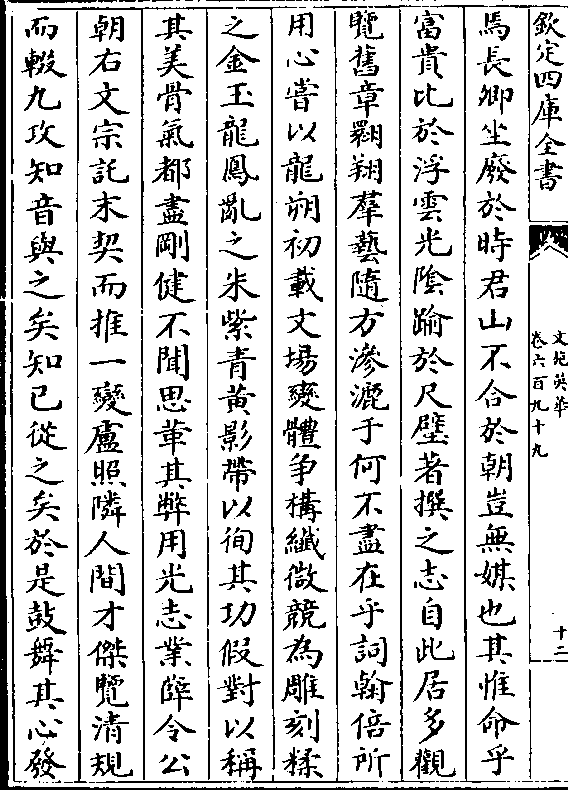 欽定四庫全書
文苑英華
卷六百九十九
十二
馬長卿坐廢於時君山不合於朝豈無媒也其惟命乎
富貴比於浮雲光陰踰於尺璧著撰之志自此居多觀
覽舊章翺翔羣藝隨方滲漉于何不盡在乎詞翰倍所
用心嘗以龍朔初載文場變體争構纖微競為雕刻糅
之金玉龍鳳亂之朱紫青黄影帶以徇其功假對以稱
其美骨氣都盡剛健不聞思革其弊用光志業薛令公
朝右文宗託末契而推一變盧照隣人間才傑覽清規
而輟九攻知音與之矣知已從之矣於是鼓舞其心發